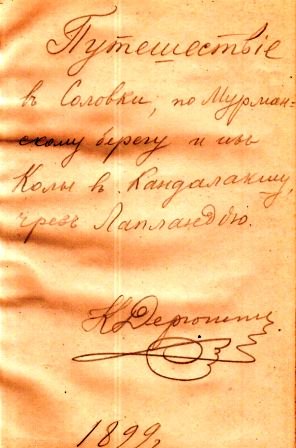 Путешествіе
в Соловки, по Мурман-
скому берегу и изъ
Колы в Кандалакшу,
чрезъ Лапландію.
1899 г.